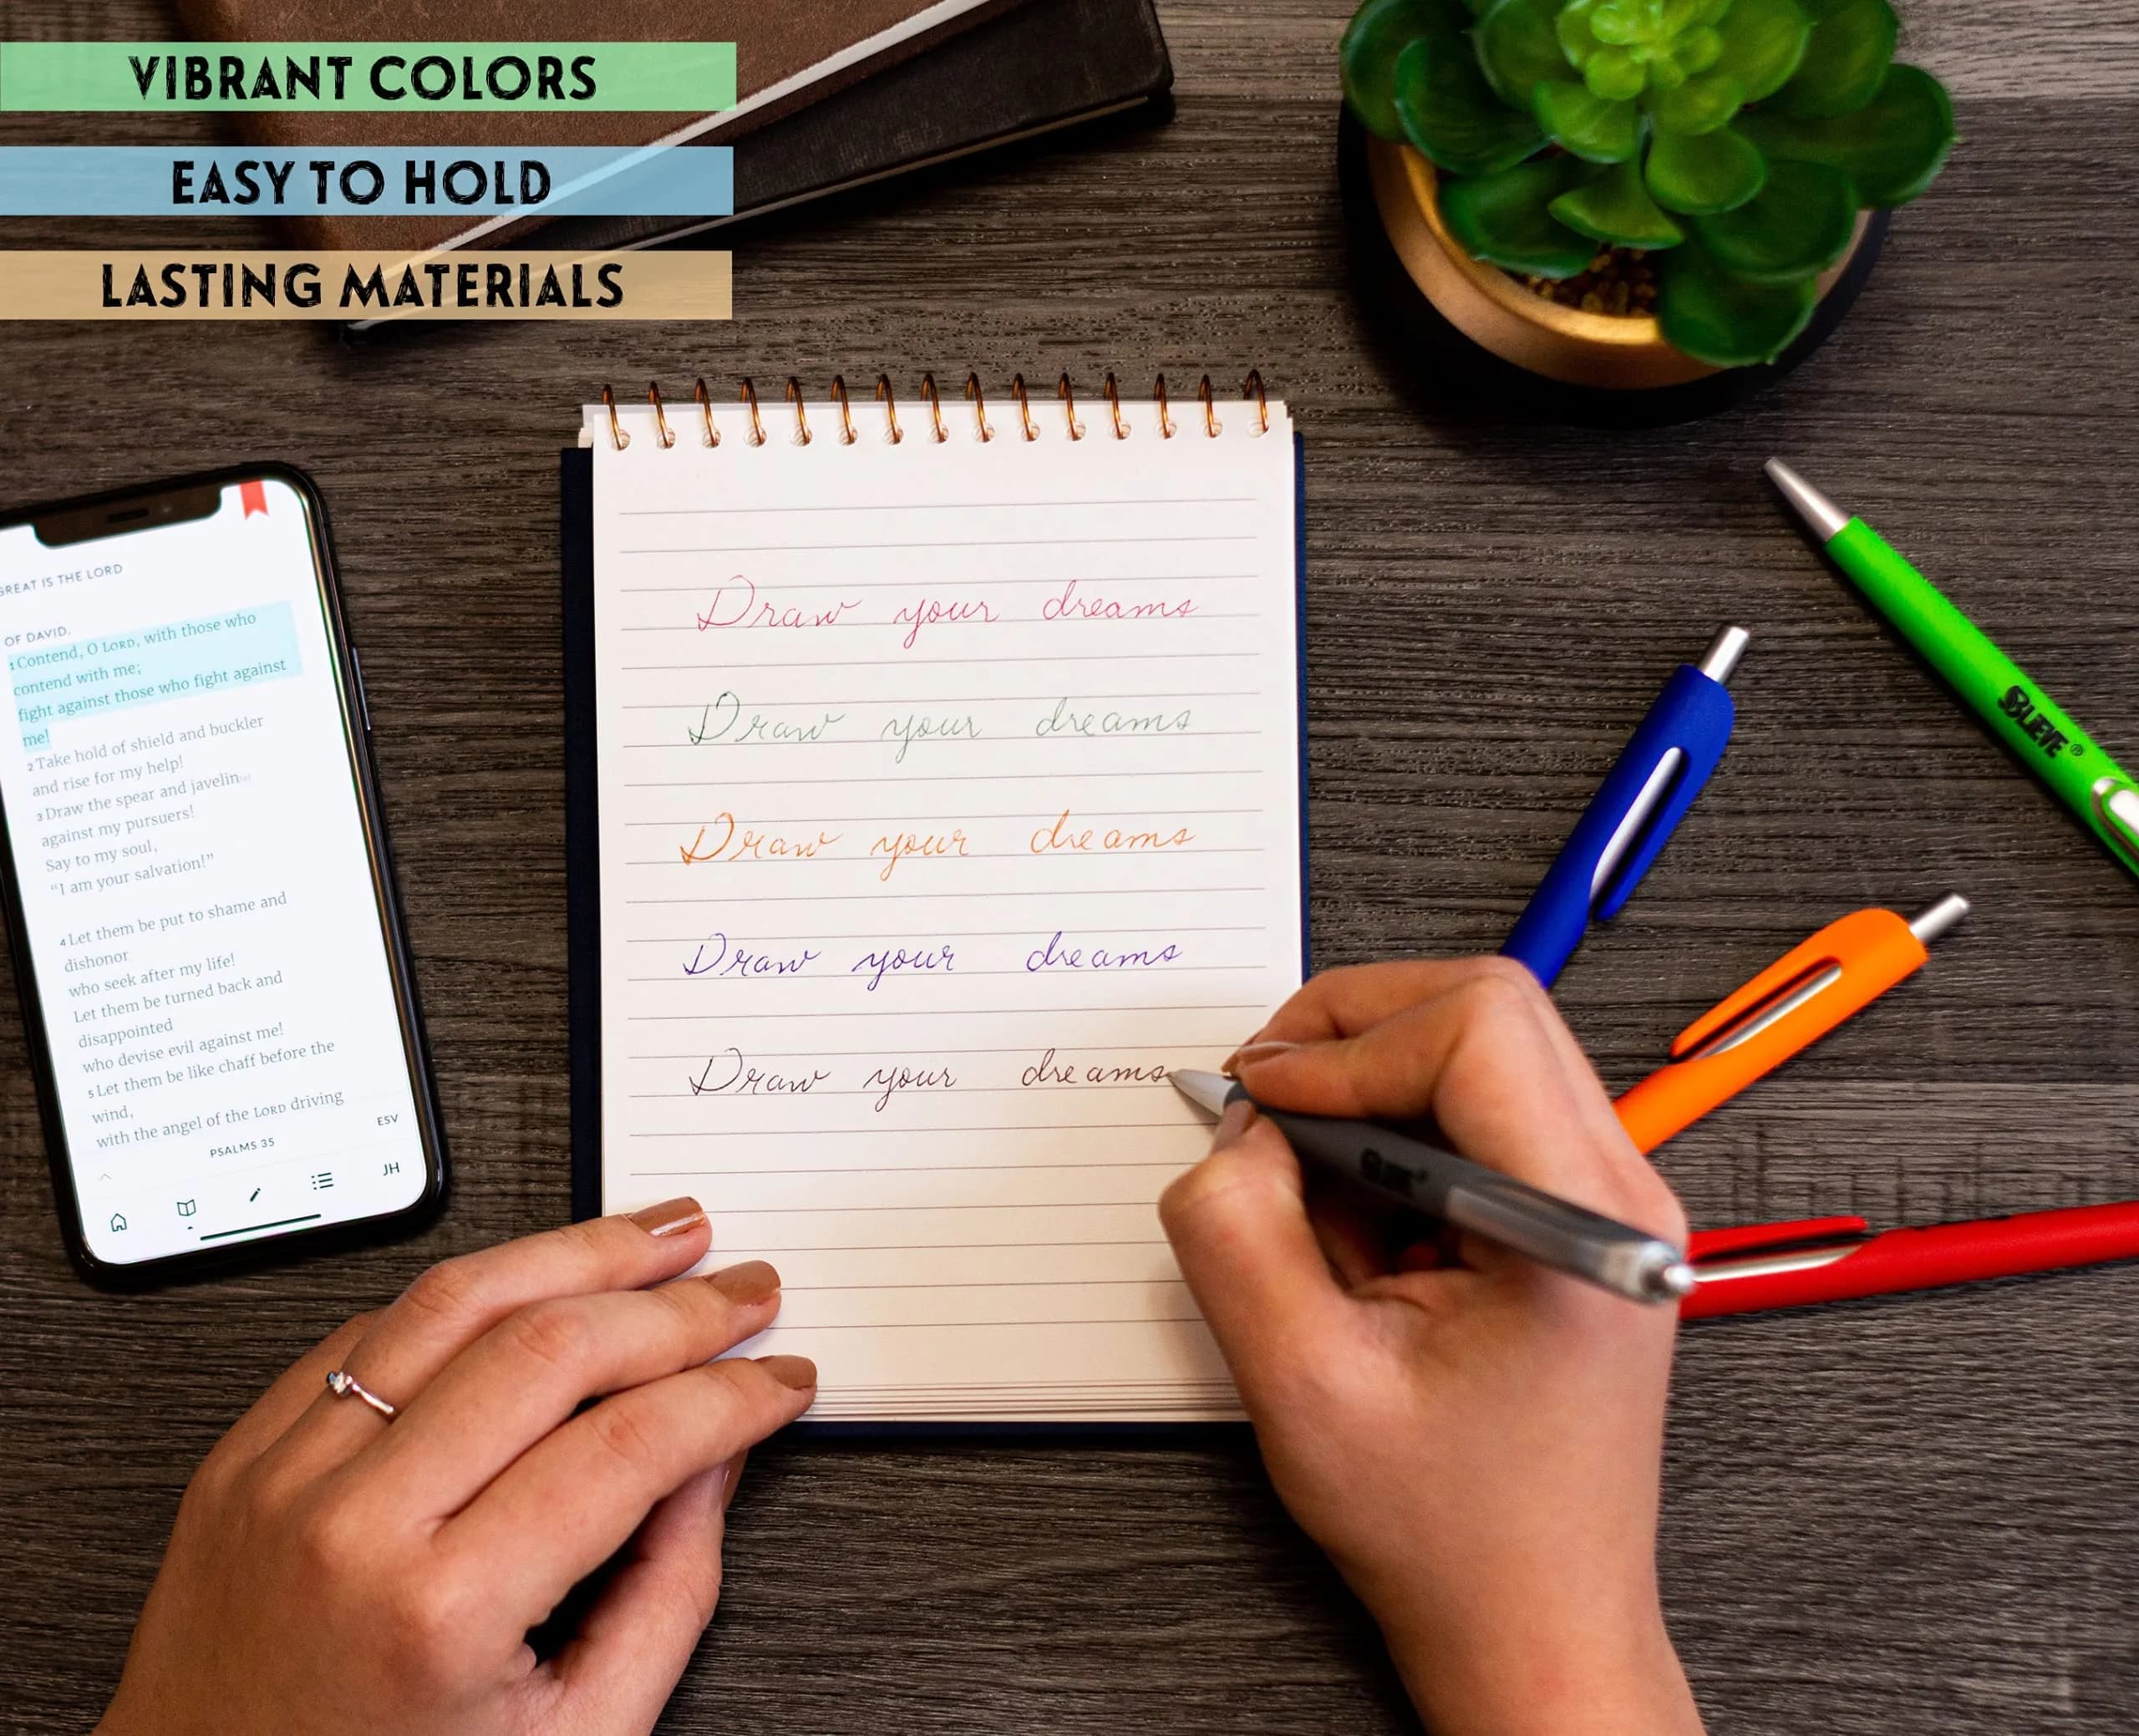 VIBRANT COLORS
EASY TO HOLD
LASTING MATERIALS
GREAT IS THE LORD
OF DAVID.
1 Contend, O LORD, with those who
contend with me;
fight against those who fight against
me!
2 Take hold of shield and buckler
and rise for my help!
3 Draw the spear and javelin
against my pursuers!
Say to my soul,
“I am your salvation!”
4 Let them be put to shame and
dishonor
who seek after my life!
Let them be turned back and
disappointed
who devise evil against me!
5 Let them be like chaff before the
wind,
with the angel of the LORD driving
PSALMS 35
ESV
JH
Draw your dreams
Draw your dreams
Draw your dreams
Draw your dreams
Draw your dreams
BLIEVE®